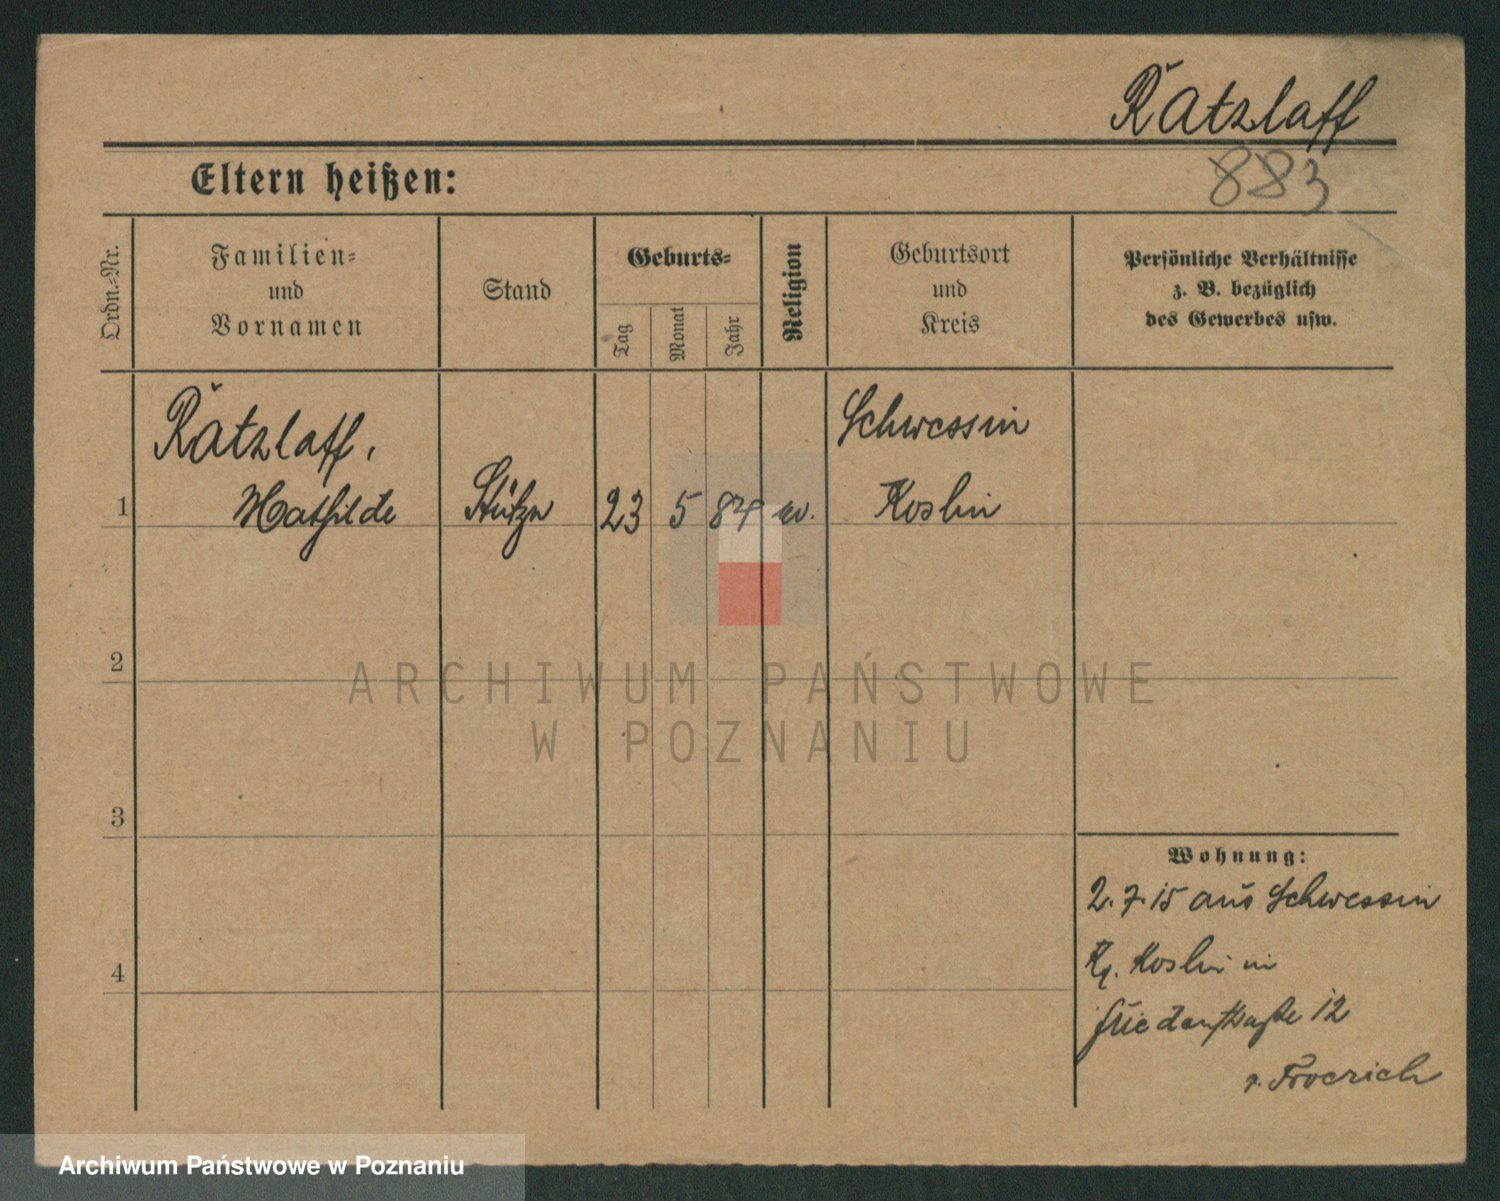 Ratzlaff
883
Eltern heißen:
Ordn.-Nr.
Familien-
und
Vornamen
Stand
Geburts-
Tag
Monat
Jahr
Religion
Geburtsort
und
Kreis
Persönliche Verhältnisse
z. B. bezüglich
des Gewerbes usw.
Ratzlaff,
Schwessin
1 Mathilde 23 5 84 w. Koslin
2
ARCHIWUM PAŃSTWOWE
W POZNANIU
3
Wohnung:
2.7.15 aus Schwessin
4
Koslin in
12
Archiwum Państwowe w Poznaniu